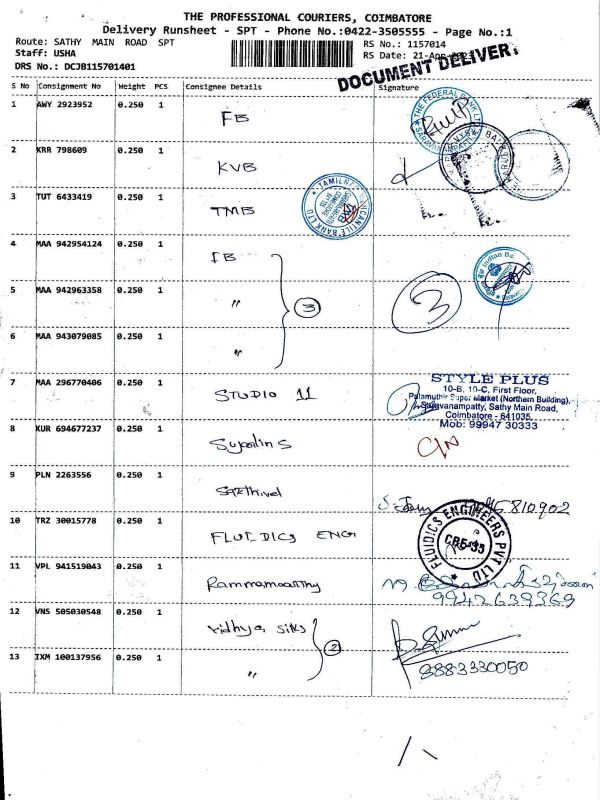 THE PROFESSIONAL COURIERS, COIMBATORE
Delivery Runsheet - SPT - Phone No.:0422-3505555 - Page No.:1
Route: SATHY MAIN ROAD SPT
RS No.: 1157014
Staff: USHA
RS Date: 21-Apr
DRS No.: DCJB115701401
DOCUMENT DELIVERY
S No Consignment No Weight PCS Consignee Details Signature
1 AWY 2923952 0.250 1 FB
THE FEDERAL BANK LTD
2 KRR 798609 0.250 1 KVB
3 TUT 6433419 0.250 1 TMB
TAMILNAD MERCANTILE BANK LTD
4 MAA 942954124 0.250 1 IB
Indian Ba
5 MAA 942963358 0.250 1 "
3
3
6 MAA 943079085 0.250 1 "
7 MAA 296770406 0.250 1 STUDIO 11
STYLE PLUS
10-B, 10-C, First Floor,
Palamuthir Super Market (Northern Building),
Saravanampatty, Sathy Main Road,
Coimbatore - 641035.
Mob: 99947 30333
8 KUR 694677237 0.250 1
9 PLN 2263556 0.250 1 Sakthivel
810902
10 TRZ 30015778 0.250 1 FLUIDICS ENG
FLUIDICS ENGINEERS PVT LTD
CBE-35
11 VPL 941519043 0.250 1 Rammamoorthy
9942639369
12 VNS 505030548 0.250 1 Vidhya Silks
2
13 IXM 100137956 0.250 1 "
8883330050